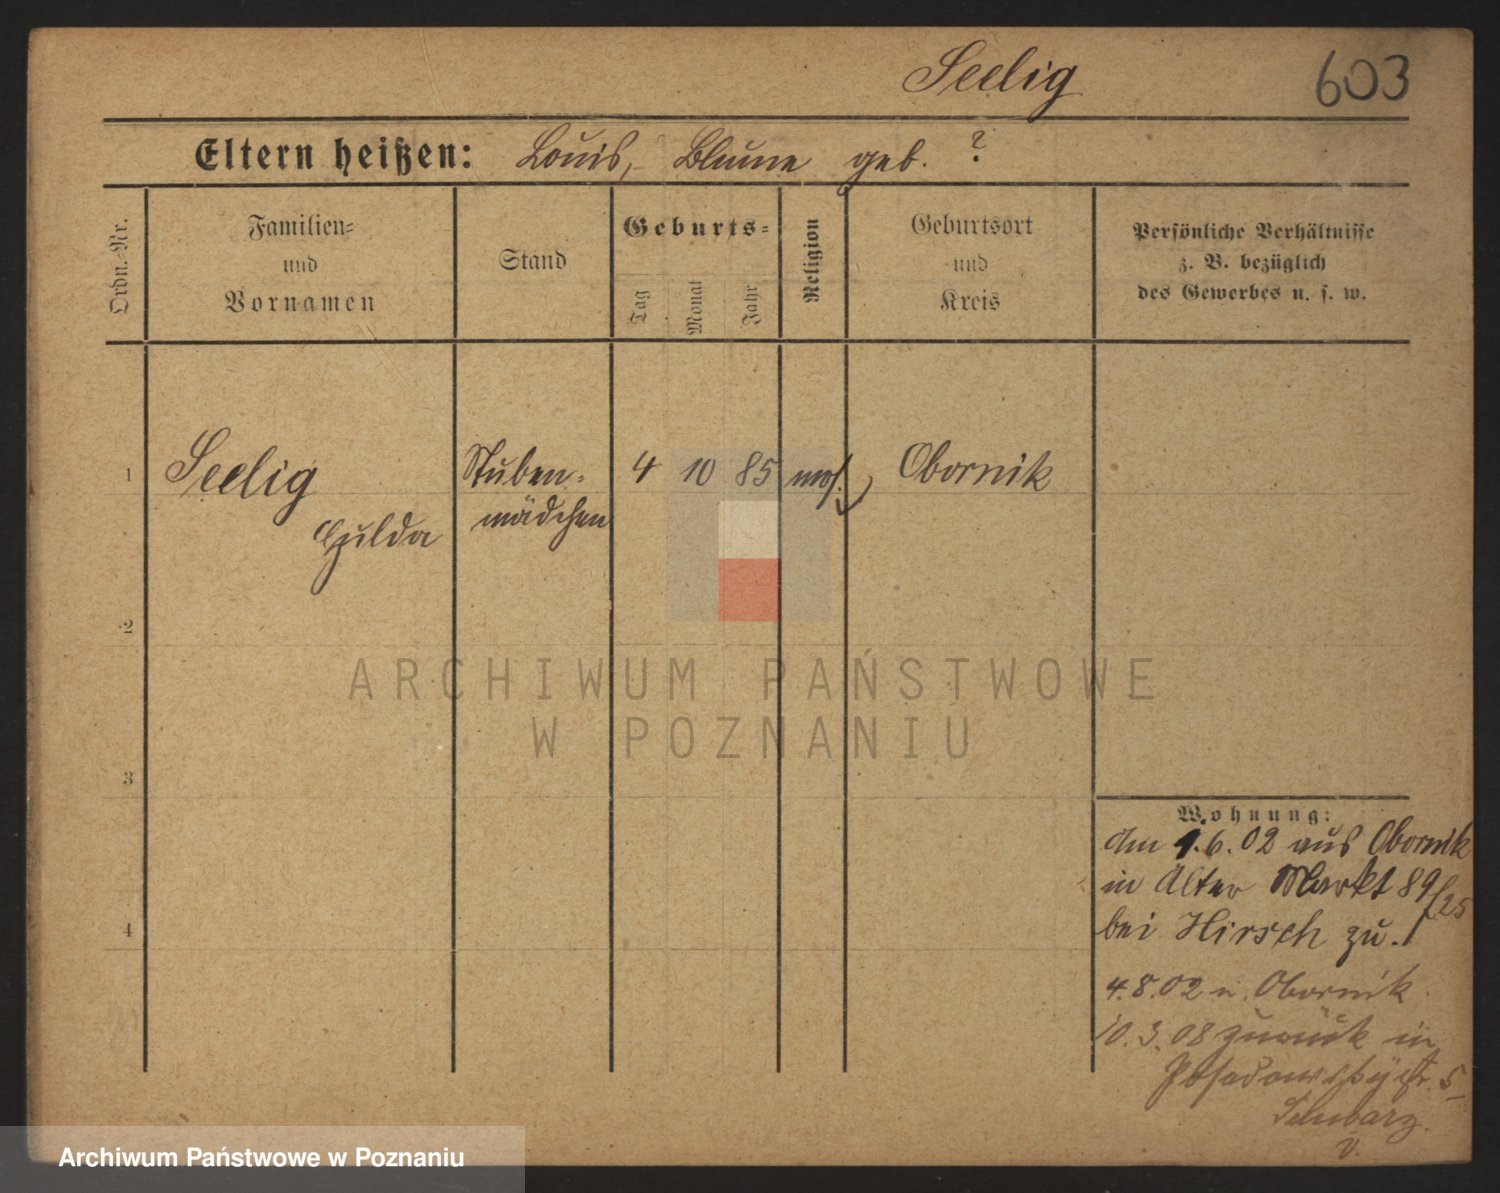 Seelig
603
Eltern heißen: Louis, Blume geb. ?
Ordn.-Nr.
Familien-
und
Vornamen
Stand
Geburts-
Tag
Monat
Jahr
Religion
Geburtsort
und
Kreis
Persönliche Verhältnisse
z. B. bezüglich
des Gewerbes u. s. w.
1 Seelig Stuben- 4 10 85 mos. Obornik
Hulda mädchen
2
3
4
Wohnung:
Am 1.6.02 aus Obornik
in Alter Markt 89/25
bei Hirsch zu.
4.8.02 n. Obornik
10.3.08 zurück in
5
ARCHIWUM PAŃSTWOWE
W POZNANIU
Archiwum Państwowe w Poznaniu